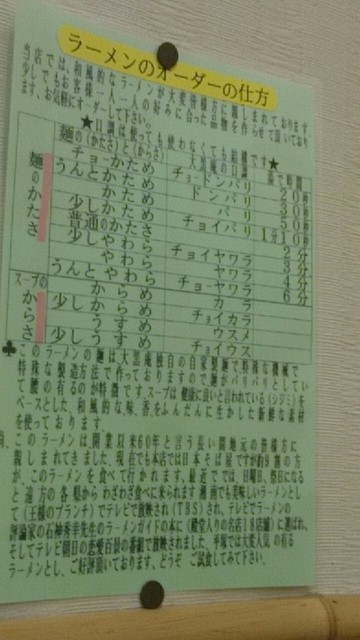 ラーメンのオーダーの仕方
当店では、和風的なラーメンが大変皆様方に親しまれております
少しでもお客様一人一人の好みに合った品物を作らせて頂いており
ます、お気軽にオーダーして下さい。
★口調は使っても使わなくても結構です★
麺の(かたさ)と(からさ) 大黒庵の口調
麺のかたさ
チョーかため チョードンバリ
うんとかため ドンバリ
かため バリ
少しかため チョイバリ
普通のかたさ
少しやわら チョイヤワラ
やわら ヤワラ
うんとやわら チョーヤワラ
スープのからさ
からめ カラ
少しからめ チョイカラ
うすめ ウスメ
少しうすめ チョイウス
♣このラーメンの麺は大黒庵独自の自家製麺で特殊な機械で
特殊な製造方法で作っておりますので麺がバリバリとしてい
て腰の有るのが特徴ですスープは健康に良いと言われている(シジミ)を
ベースとした、和風的な味、香をふんだんに生かした新鮮な素材
を使っております。
このラーメンは開業以来60年と言う長い間地元の皆様方に
親しまれてきました、現在でも本店では日本そば屋ですが約9割の方
が、このラーメンを食べて行かれます。最近では、日曜日、祭日になる
と遠方の各県からわざわざ食べに来られます湘南でも美味しいラーメンとし
て(王様のブランチ)でテレビで放映され(TBS)され、テレビでラーメンの
評論家の石神秀幸先生のラーメンガイドの本に(殿堂入りの名店18店舗)に選ばれ、
そしてテレビ朝日の恋愛百景の番組で放映されました、平塚では大変人気の有る
ラーメンとし、ご好評頂いております、どうぞ ご試食してみて下さい。